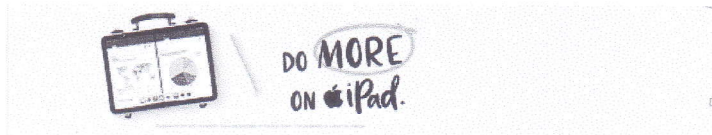 DO MORE
ON iPad.